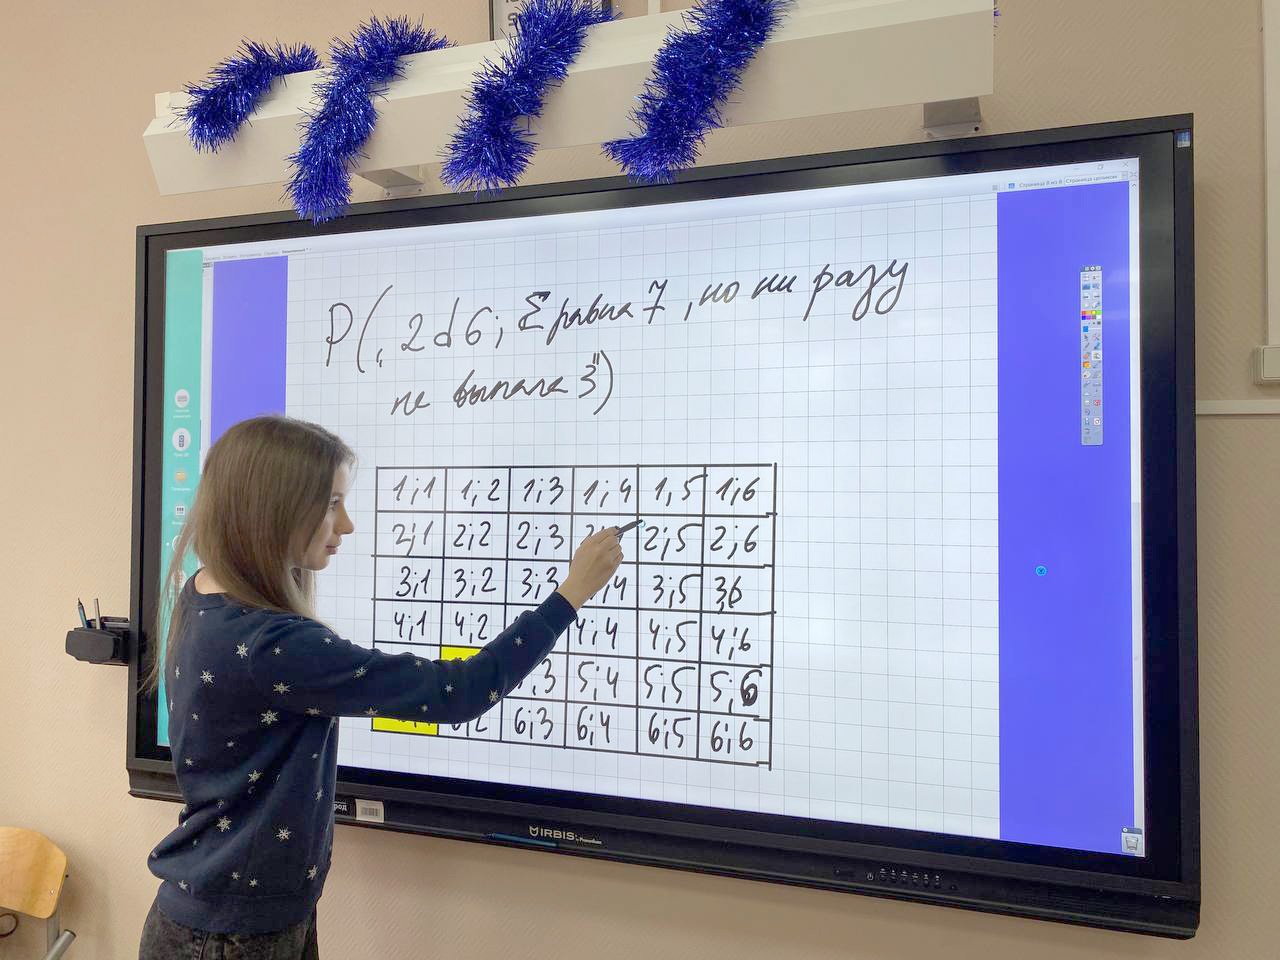 Страница 8 из 8 Страница целиком
P(„2d6; Σ равна 7, но ни разу
не выпала 3")
1;1 1;2 1;3 1;4 1,5 1;6
2;1 2;2 2;3 2;5 2;6
3;1 3;2 3;3 ;4 3;5 3;6
4;1 4;2 4;4 4;5 4;6
;3 5;4 5;5 5;6
6;2 6;3 6;4 6;5 6;6
IRBIS